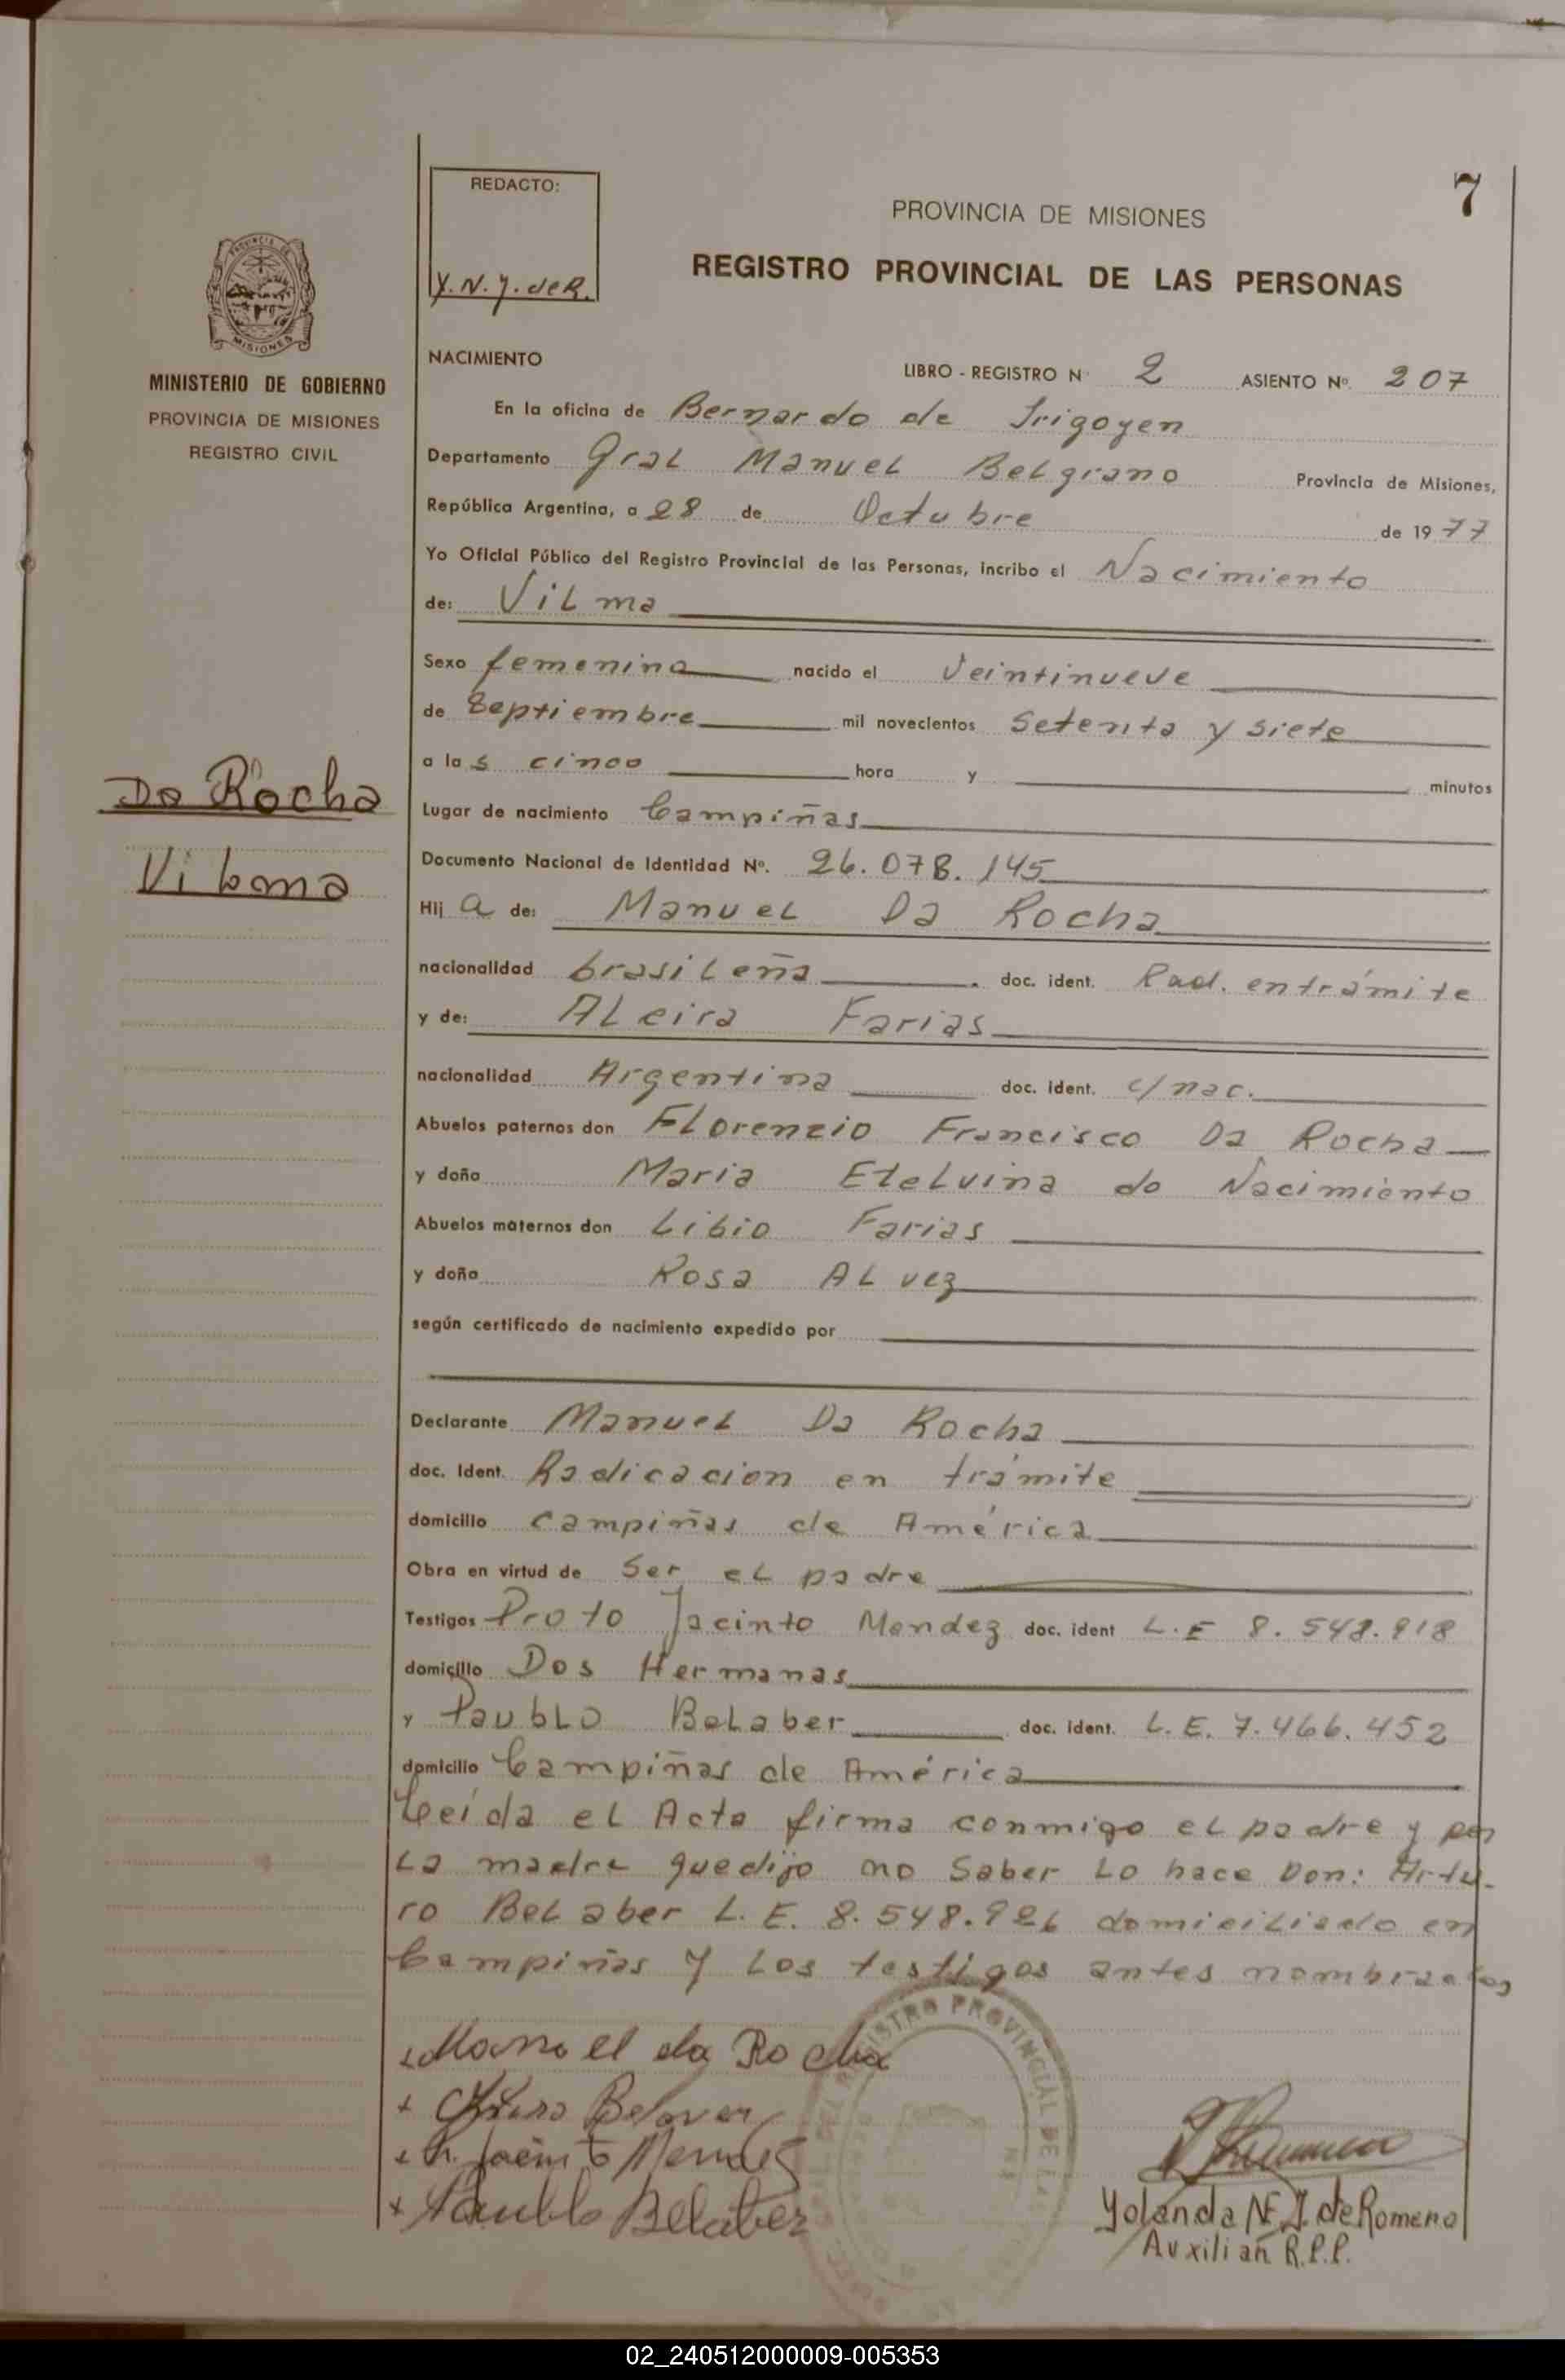 7
REDACTO:
Y. N. J. de R.
PROVINCIA DE MISIONES
REGISTRO PROVINCIAL DE LAS PERSONAS
MISIONES
MINISTERIO DE GOBIERNO
PROVINCIA DE MISIONES
REGISTRO CIVIL
Da Rocha
Vilma
NACIMIENTO LIBRO - REGISTRO N 2 ASIENTO Nº. 207
En la oficina de Bernardo de Irigoyen
Departamento Gral Manuel Belgrano Provincia de Misiones,
República Argentina, a 28 de Octubre de 1977
Yo Oficial Público del Registro Provincial de las Personas, incribo el Nacimiento
de: Vilma
Sexo femenino nacido el Veintinueve
de Septiembre mil novecientos Setenta y siete
a las cinco hora y minutos
Lugar de nacimiento Campiñas
Documento Nacional de Identidad Nº. 26.078.145
Hij a de: Manuel Da Rocha
nacionalidad brasileña doc. ident. Rad. en trámite
y de: Aleira Farias
nacionalidad Argentina doc. ident. c/nac.
Abuelos paternos don Florencio Francisco Da Rocha
y doña Maria Etelvina do Nacimiento
Abuelos maternos don Libio Farias
y doña Rosa Alvez
según certificado de nacimiento expedido por
Declarante Manuel Da Rocha
doc. Ident. Radicacion en trámite
domicilio Campiñas de América
Obra en virtud de Ser el padre
Testigos Proto Jacinto Mendez doc. ident L.E 8.548.918
domicilio Dos Hermanas
y Paublo Belaber doc. ident. L.E. 7.466.452
domicilio Campiñas de América
Leída el Acta firma conmigo el padre y por
la madre que dijo no Saber lo hace Don: Artu-
ro Belaber L.E. 8.548.926 domiciliado en
Campiñas y los testigos antes nombrados
Manoel da Rocha
Arturo Belaver
Jacinto Mendez
Paublo Belaber
REGISTRO PROVINCIAL DE LAS
Yolanda N. J. de Romero
Auxiliar R.P.P.
02_240512000009-005353